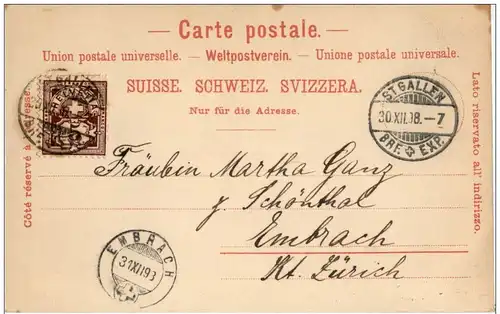 – Carte postale. –
Union postale universelle. – Weltpostverein. – Unione postale universale.
SUISSE. SCHWEIZ. SVIZZERA.
Nur für die Adresse.
Côté réservé à l'adresse.
Lato riservato all' indirizzo.
ST GALLEN
30.XII.98.–7
BRF. EXP.
Fräulein Martha Ganz
z. Schönthal
Embrach
Kt. Zürich
EMBRACH
31XII98